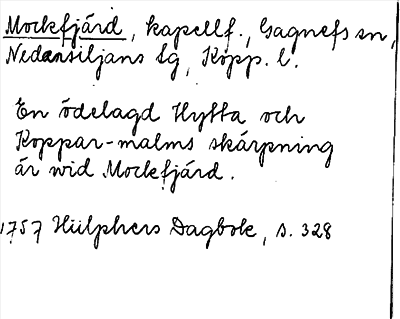 Mockfjärd, kapellf., Gagnefs sn,
Nedansiljans Lg, Kopp. l.
En ödelagd Hytta och
Koppar-malms skärpning
är wid Mockfjärd.
1757 Hülphers Dagbok, s. 328